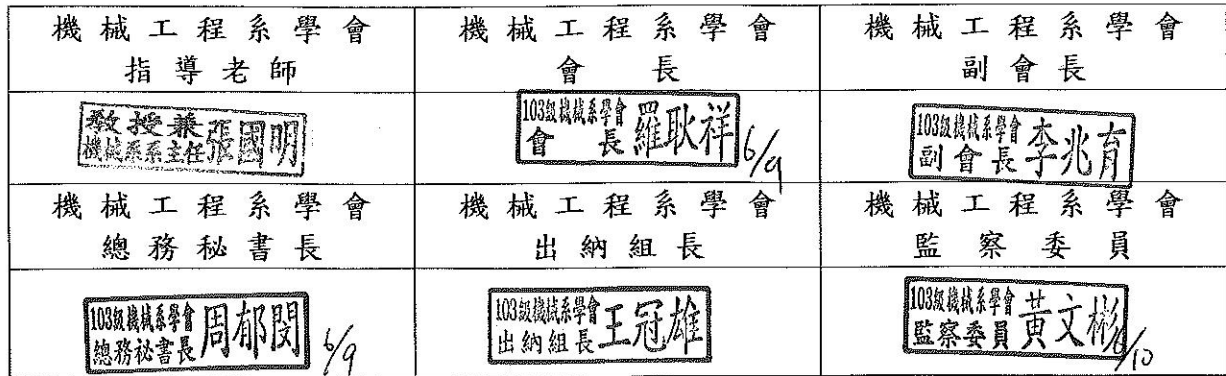 機械工程系學會
指導老師
機械工程系學會
會長
機械工程系學會
副會長
教授兼
機械系系主任
張國明
103級機械系學會
會長
羅耿祥
6/9
103級機械系學會
副會長
李兆育
機械工程系學會
總務秘書長
機械工程系學會
出納組長
機械工程系學會
監察委員
103級機械系學會
總務祕書長
周郁閔
6/9
103級機械系學會
出納組長
王冠雄
103級機械系學會
監察委員
黃文彬
6/10